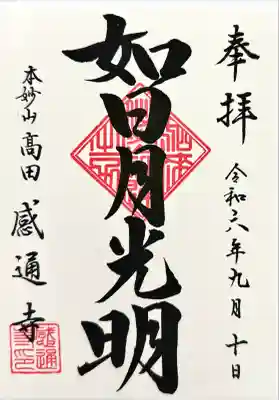 奉拝
令和六年九月十日
如日月光明
本妙山
高田
感通寺